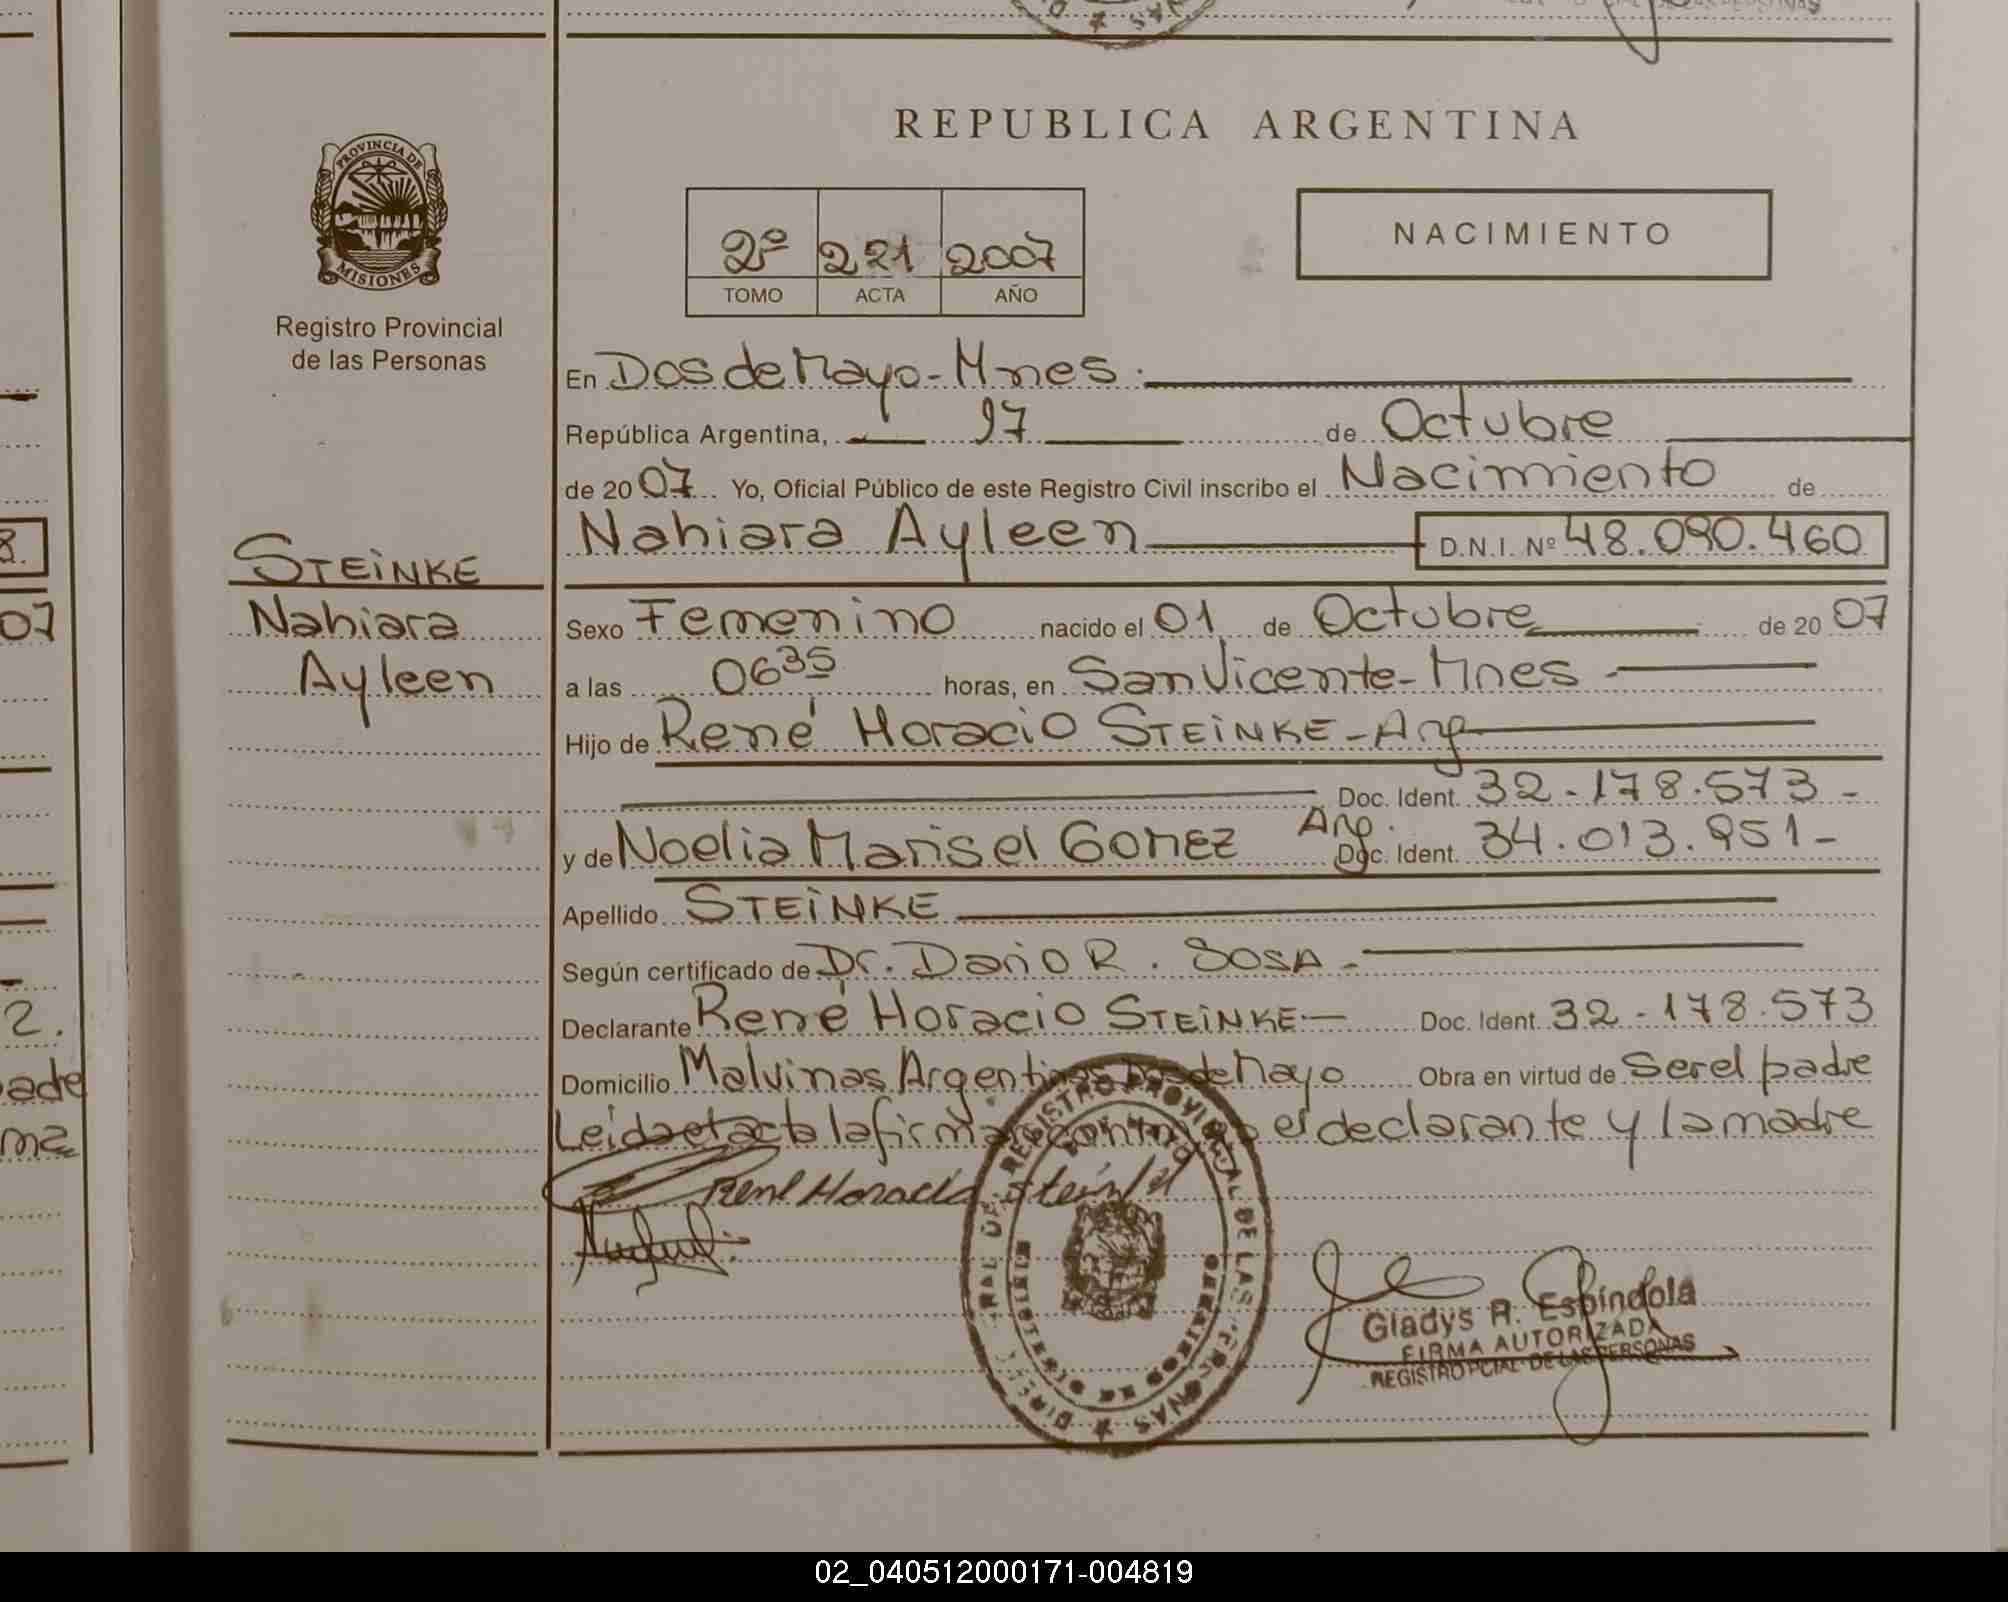 REPUBLICA ARGENTINA
PROVINCIA DE
MISIONES
Registro Provincial
de las Personas
NACIMIENTO
2º 221 2007
TOMO ACTA AÑO
En Dos de Mayo - Mnes.
República Argentina, 17 de Octubre
de 2007 Yo, Oficial Público de este Registro Civil inscribo el Nacimiento de
STEINKE
Nahiara Ayleen D.N.I. Nº 48.090.460
Nahiara
Ayleen
Sexo Femenino nacido el 01 de Octubre de 2007
a las 06 35 horas, en San Vicente - Mnes
Hijo de René Horacio STEINKE - Arg
Doc. Ident. 32.178.573 -
y de Noelia Marisel GOMEZ Arg. Doc. Ident. 34.013.951 -
Apellido STEINKE
Según certificado de Dr. Dario R. SOSA -
Declarante René Horacio STEINKE - Doc. Ident. 32.178.573
Domicilio Malvinas Argentinas Dos de Mayo Obra en virtud de Ser el padre
Leida el acta la firman conmigo el declarante y la madre
René Horacio Steinke
REGISTRO PROVINCIAL DE LAS PERSONAS
Gladys R. Espíndola
FIRMA AUTORIZADA
REGISTRO PCIAL. DE LAS PERSONAS
8.
07
2.
adre
02_040512000171-004819